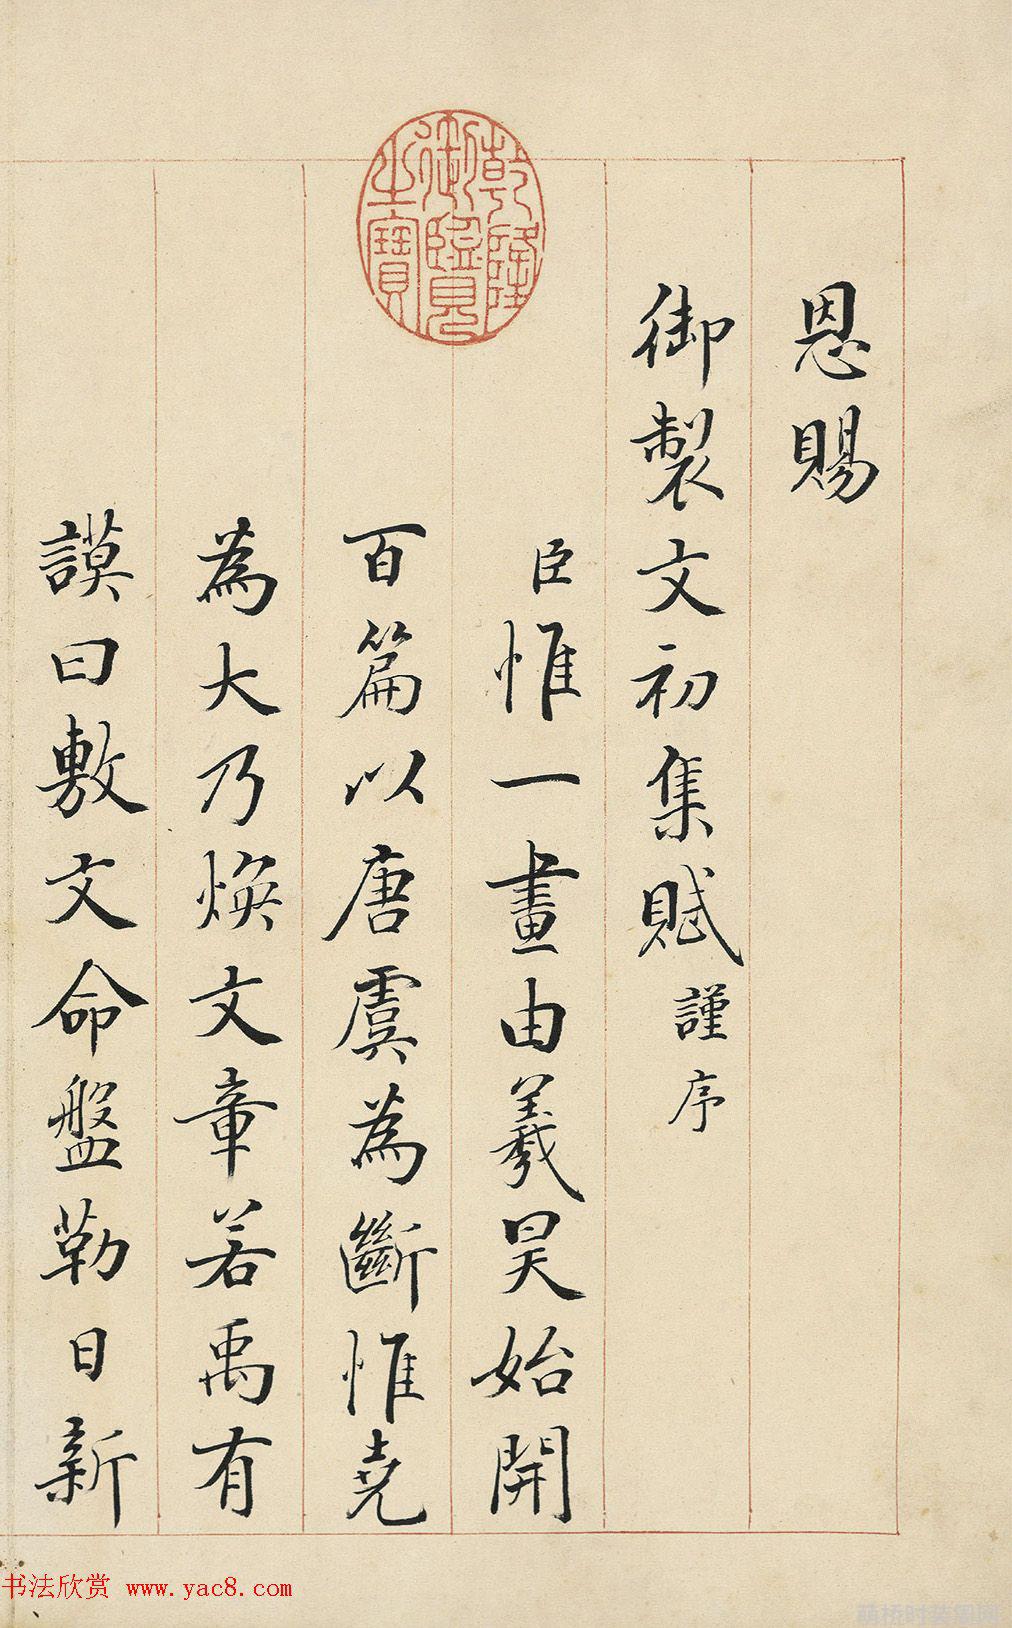 恩賜
御製文初集賦謹序
臣惟一畫由羲昊始開
百篇以唐虞為斷惟堯
為大乃煥文章若禹有
謨曰敷文命盤勒日新
乾隆御覽之寶
书法欣赏 www.yac8.com